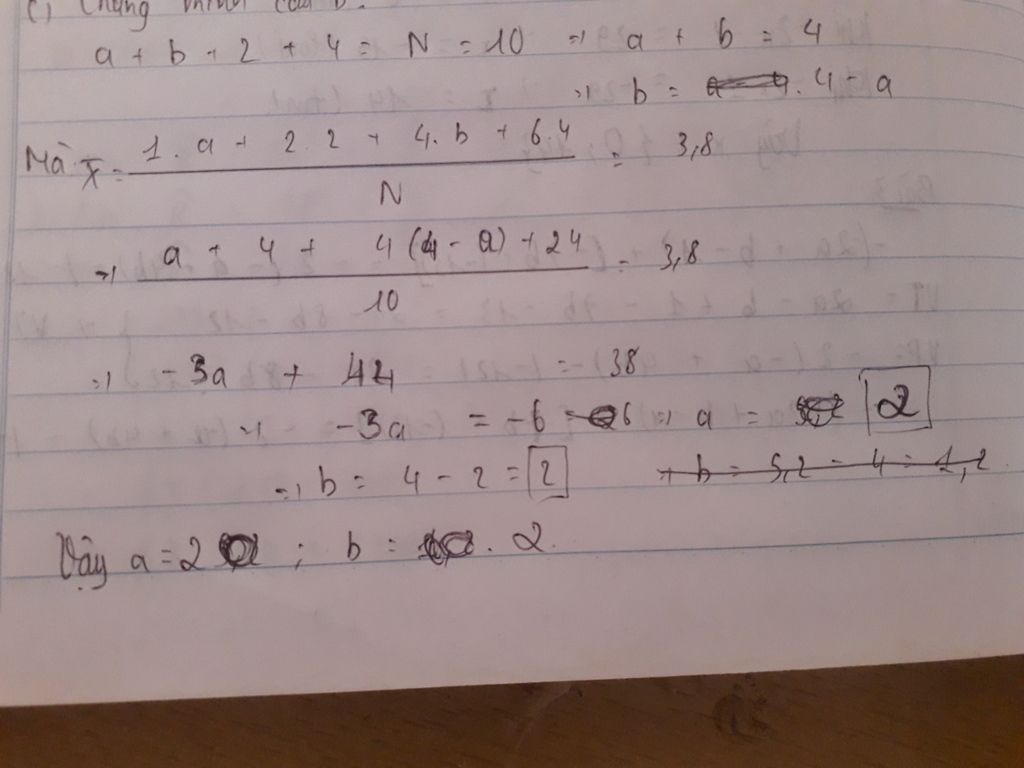 c) Chứng minh câu b.
a + b + 2 + 4 = N = 10 => a + b = 4
=> b = 4 - a
Mà X̄ = (1.a + 2.2 + 4.b + 6.4) / N = 3,8
=> (a + 4 + 4(4 - a) + 24) / 10 = 3,8
=> -3a + 44 = 38
=> -3a = -6 => a = 2
=> b = 4 - 2 = 2 + b = 5,2 - 4 = 1,2
Vậy a = 2 ; b = 2.